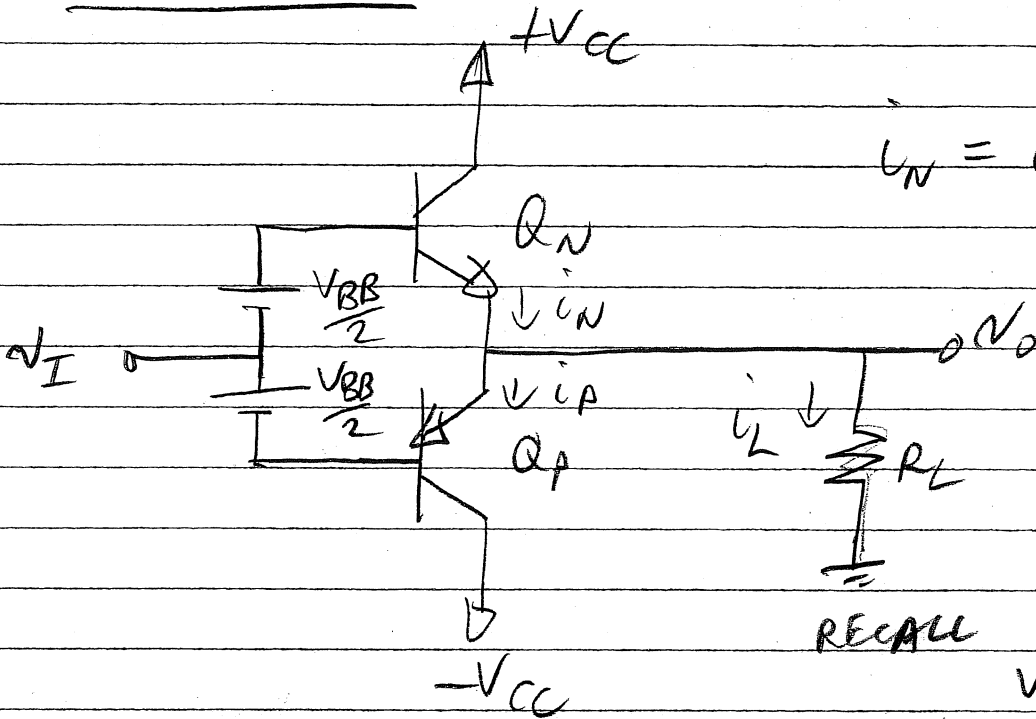 +VCC
iN =
QN
VBB/2
iN
vI
vo
VBB/2
iP
iL
QP
RL
RECALL
-VCC
V